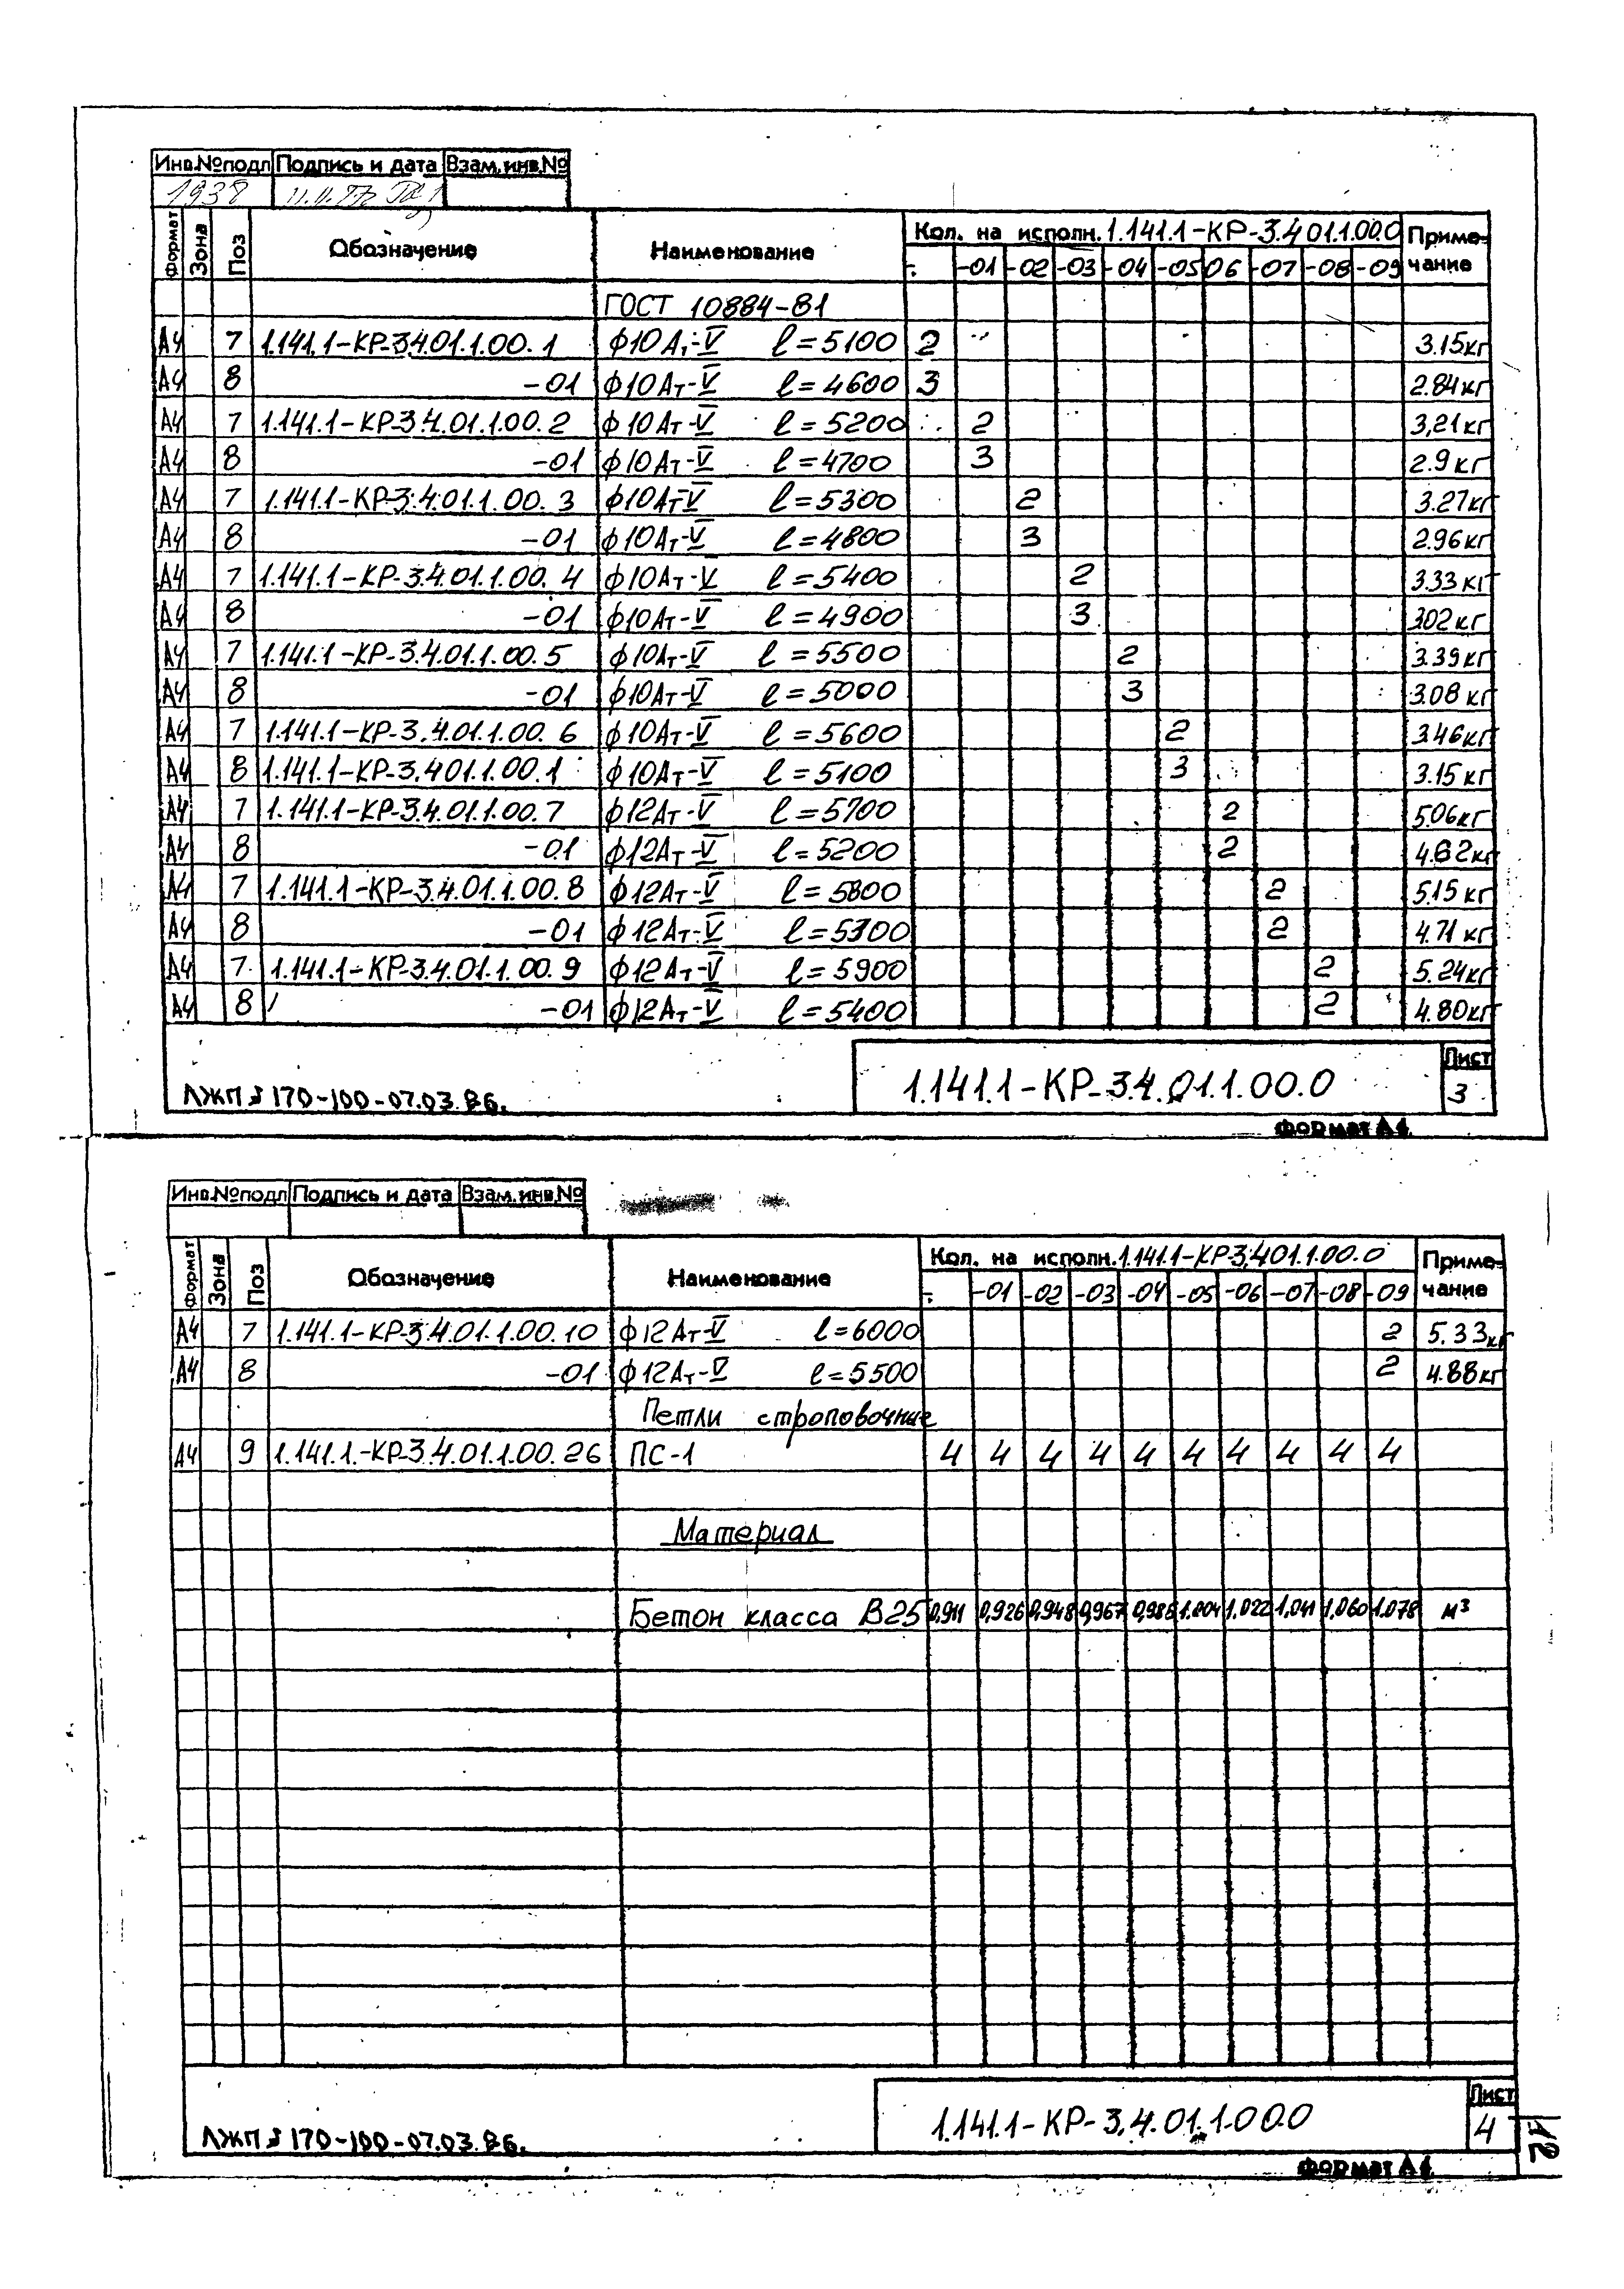 Инв.№подл Подпись и дата Взам.инв.№
1938
Формат Зона Поз Обозначение Наименование Кол. на исполн. 1.141.1-КР-3.4.01.1.00.0 Приме-
- -01 -02 -03 -04 -05 06 -07 -08 -09 чание
ГОСТ 10884-81
А4 7 1.141.1-КР-3.4.01.1.00.1 ф10Ат-V l=5100 2 3.15кг
А4 8 -01 ф10Ат-V l=4600 3 2.84кг
А4 7 1.141.1-КР-3.4.01.1.00.2 ф10Ат-V l=5200 2 3,21кг
А4 8 -01 ф10Ат-V l=4700 3 2.9кг
А4 7 1.141.1-КР-3.4.01.1.00.3 ф10Ат-V l=5300 2 3.27кг
А4 8 -01 ф10Ат-V l=4800 3 2.96кг
А4 7 1.141.1-КР-3.4.01.1.00.4 ф10Ат-V l=5400 2 3.33кг
А4 8 -01 ф10Ат-V l=4900 3 3.02кг
А4 7 1.141.1-КР-3.4.01.1.00.5 ф10Ат-V l=5500 2 3.39кг
А4 8 -01 ф10Ат-V l=5000 3 3.08кг
А4 7 1.141.1-КР-3.4.01.1.00.6 ф10Ат-V l=5600 2 3.46кг
А4 8 1.141.1-КР-3.401.1.00.1 ф10Ат-V l=5100 3 3.15кг
А4 7 1.141.1-КР-3.4.01.1.00.7 ф12Ат-V l=5700 2 5.06кг
А4 8 -01 ф12Ат-V l=5200 2 4.62кг
А4 7 1.141.1-КР-3.4.01.1.00.8 ф12Ат-V l=5800 2 5.15кг
А4 8 -01 ф12Ат-V l=5300 2 4.71кг
А4 7 1.141.1-КР-3.4.01.1.00.9 ф12Ат-V l=5900 2 5.24кг
А4 8 -01 ф12Ат-V l=5400 2 4.80кг
ЛЖПЗ 170-100-07.03.86.
1.141.1-КР-3.4.01.1.00.0
Лист
3
Формат А4
Инв.№подл Подпись и дата Взам.инв.№
Формат Зона Поз Обозначение Наименование Кол. на исполн. 1.141.1-КР-3.401.1.00.0 Приме-
- -01 -02 -03 -04 -05 -06 -07 -08 -09 чание
А4 7 1.141.1-КР-3.4.01.1.00.10 ф12Ат-V l=6000 2 5.33кг
А4 8 -01 ф12Ат-V l=5500 2 4.88кг
Петли строповочные
А4 9 1.141.1-КР-3.4.01.1.00.26 ПС-1 4 4 4 4 4 4 4 4 4 4
Материал
Бетон класса В25 0,911 0,926 0,948 0,967 0,986 1.004 1.022 1,041 1,060 1.078 м³
ЛЖПЗ 170-100-07.03.86.
1.141.1-КР-3.4.01.1.00.0
Лист
4
Формат А4
12